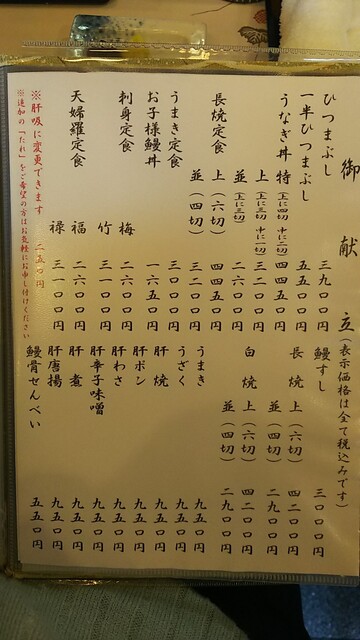 御献立(表示価格は全て税込みです)
ひつまぶし 三九〇〇円
一半ひつまぶし 五五〇〇円
うなぎ丼 特(上に四切 中に二切) 四四五〇円
上(上に三切 中に一切) 三二〇〇円
並(上に三切) 二六〇〇円
長焼定食 上(六切) 四四五〇円
並(四切) 三二〇〇円
うまき定食 三〇〇〇円
お子様鰻丼 一六五〇円
刺身定食 梅 二六〇〇円
竹 三一〇〇円
天婦羅定食 福 二六〇〇円
禄 三一〇〇円
※肝吸に変更できます 二五〇円
※追加の「たれ」をご希望の方はお気軽にお申し付けください
鰻すし 三〇〇〇円
長焼 上(六切) 四二〇〇円
並(四切) 二九〇〇円
白焼 上(六切) 四二〇〇円
並(四切) 二九〇〇円
うまき 九五〇円
うざく 九五〇円
肝焼 九五〇円
肝ポン 九五〇円
肝わさ 九五〇円
肝辛子味噌 九五〇円
肝煮 九五〇円
肝唐揚 九五〇円
鰻骨せんべい 五五〇円